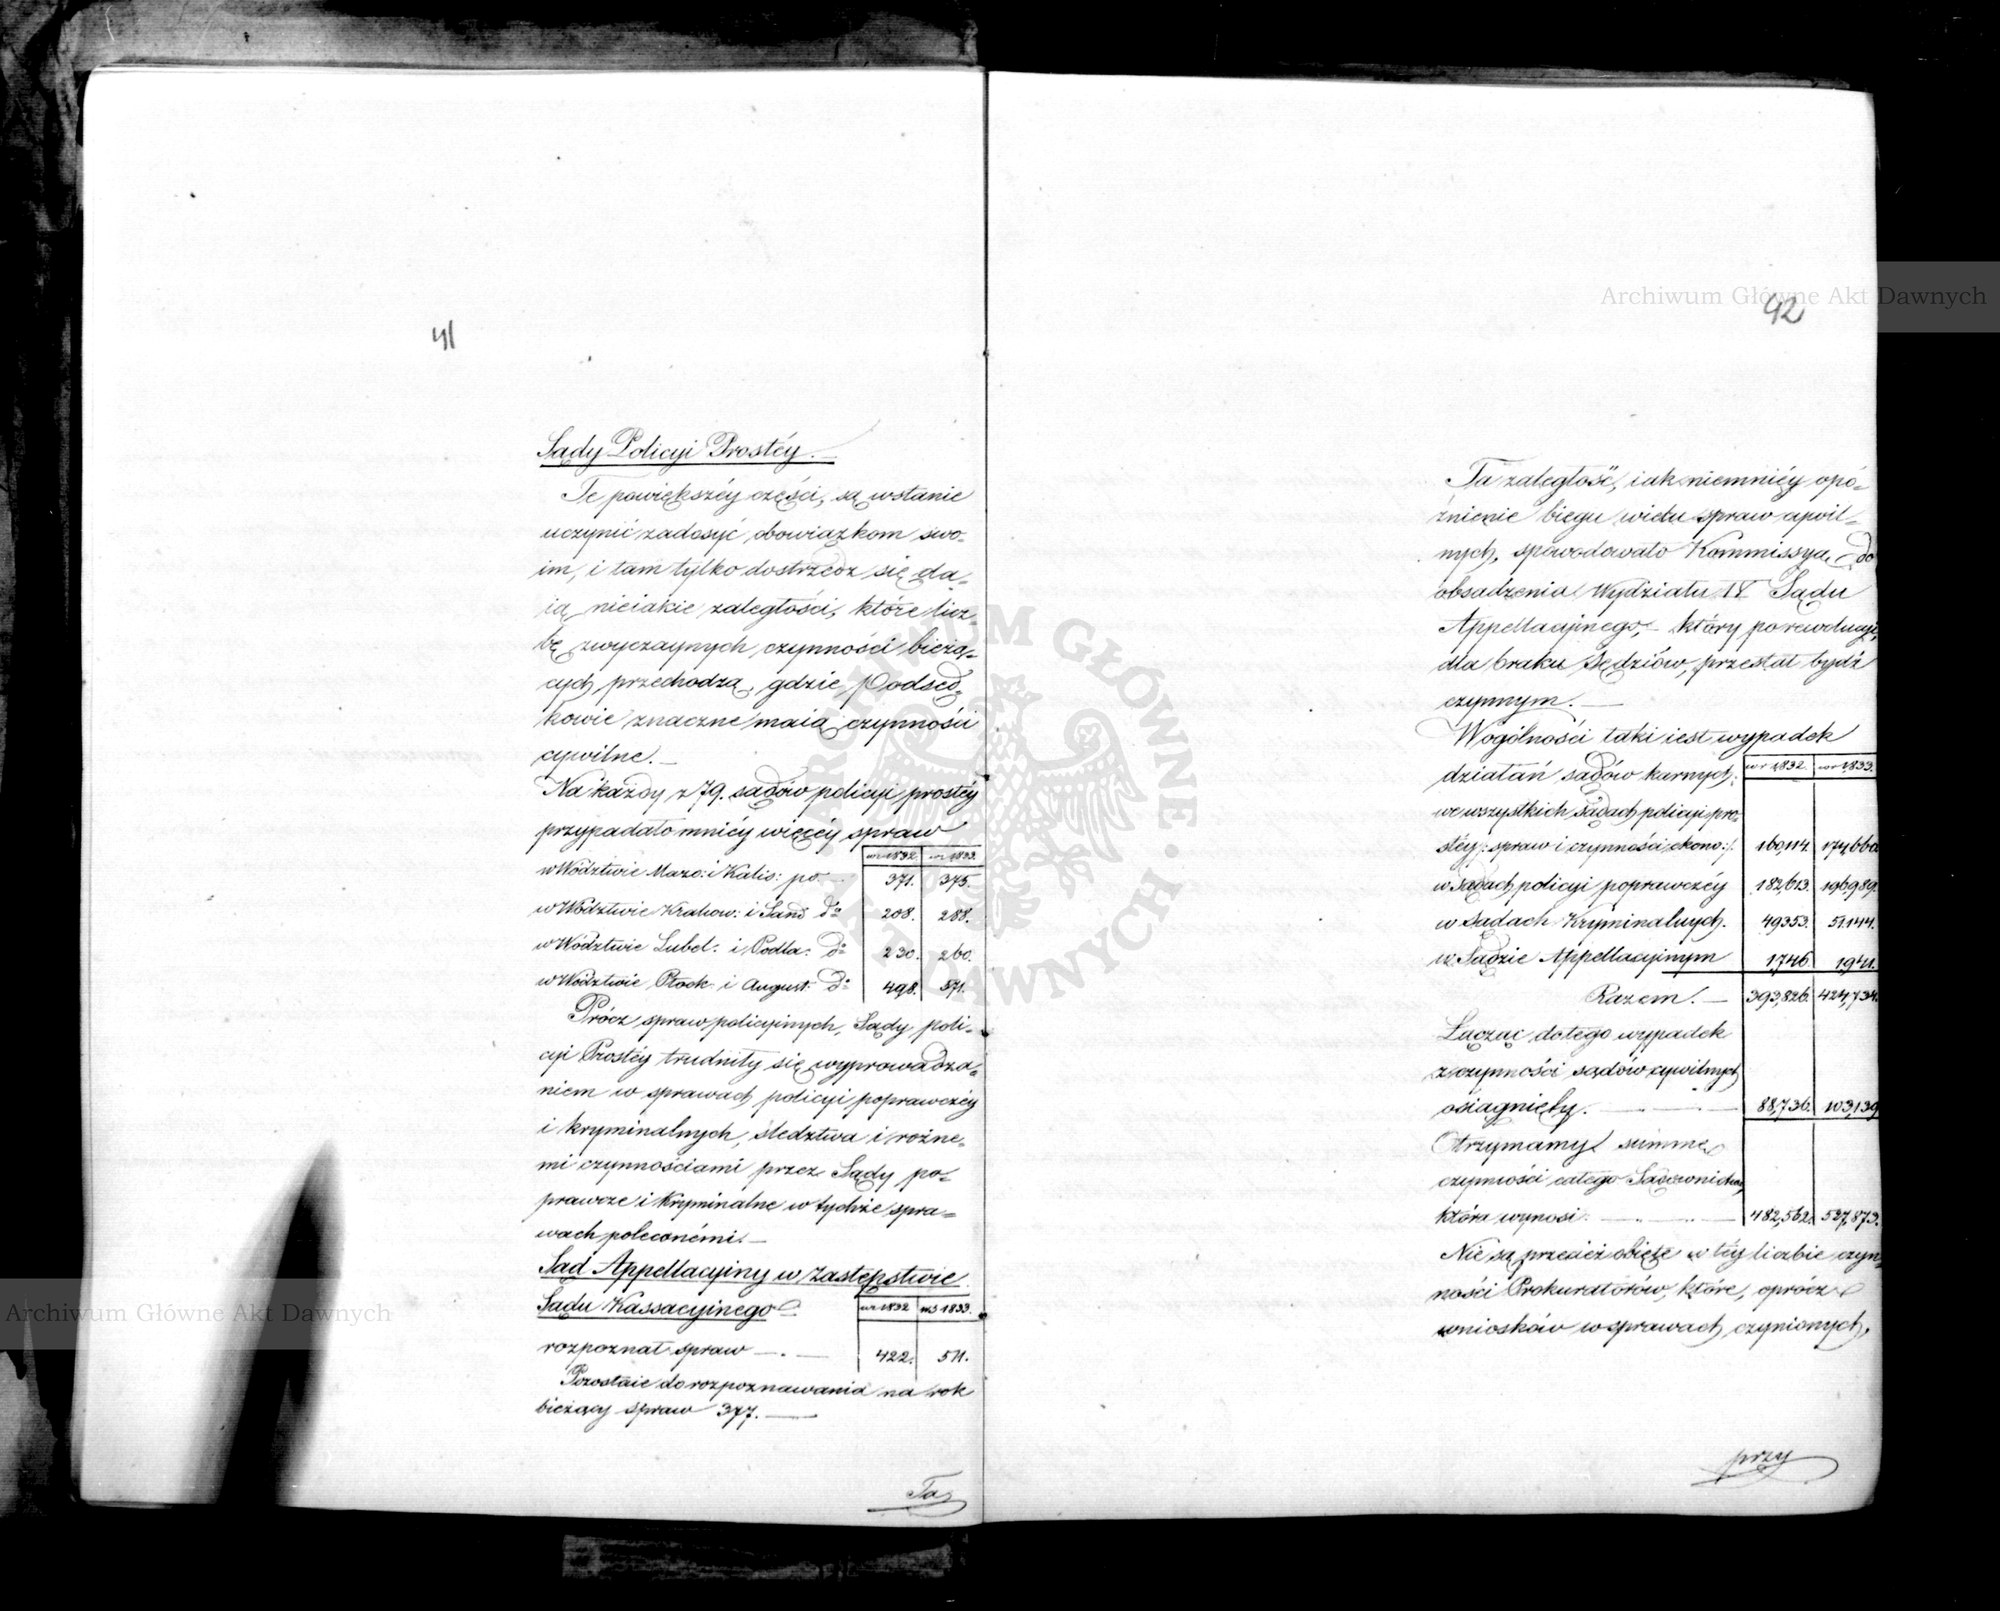 41
Sądy Policyi Prostéy.
Te powiększéy części, są wstanie
uczynić zadosyć obowiązkom swo-
im, i tam tylko dostrzedz się da-
ią nieiakie zaległości, które licz-
bę zwyczaynych czynności bieżą-
cych przechodzą, gdzie Podsęd-
kowie znaczne maią czynności
cywilne.
Na każdy z 79. sądów policyi prostéy
przypadało mniéy więcéy spraw
w r 1832 w r 1833.
w Wództwie Mazo: i Kalis: po 371. 375.
w Wództwie Krakow: i Sand do 208. 288.
w Wództwie Lubel: i Podla: do 230. 260.
w Wództwie Płock i August: do 498. 571.
Prócz spraw policyinych, Sądy poli-
cyi Prostéy trudniły się wyprowadza-
niem w sprawach policyi poprawczéy
i kryminalnych, śledztwa i rożne-
mi czynnościami przez Sądy po-
prawcze i Kryminalne w tychże spra-
wach poleconémi.
Sąd Appellacyiny w Zastępstwie
Sądu Kassacyinego w r 1832 1833.
rozpoznał spraw 422. 511.
Pozostaie do rozpoznawania na rok
bieżący spraw 377.
Ta
42
Ta zaległość, iak niemniéy opó-
źnienie biegu wielu spraw cywil-
nych, spowodowało Kommissyą do
obsadzenia Wydziału IV Sądu
Appellacyinego, który po rewolucyi,
dla braku Sędziów, przestał bydź
czynnym.
Wogólności taki iest wypadek
działań sądów karnych: w r 1832. w r 1833.
we wszystkich sądach policyi pro-
stéy /: spraw i czynności ekono :/ 160,114. 174,660
w sądach policyi poprawczéy 182,613. 196,989.
w sądach Kryminalnych. 49353. 51.144.
w Sądzie Appellacyinym 1,746. 1,941.
Razem. 393,826. 424,734.
Łącząc do tego wypadek
z czynności sądów cywilnych
osiągnięty. 88,736. 103,139
Otrzymamy summę
czynności całego Sądownictwa,
która wynosi. 482,562. 527,873.
Nie są przecież obięte w téy liczbie czyn-
ności Prokuratorów, które, oprócz
wniosków w sprawach czynionych,
przy
Archiwum Główne Akt Dawnych
Archiwum Główne Akt Dawnych
ARCHIWUM GŁÓWNE AKT DAWNYCH